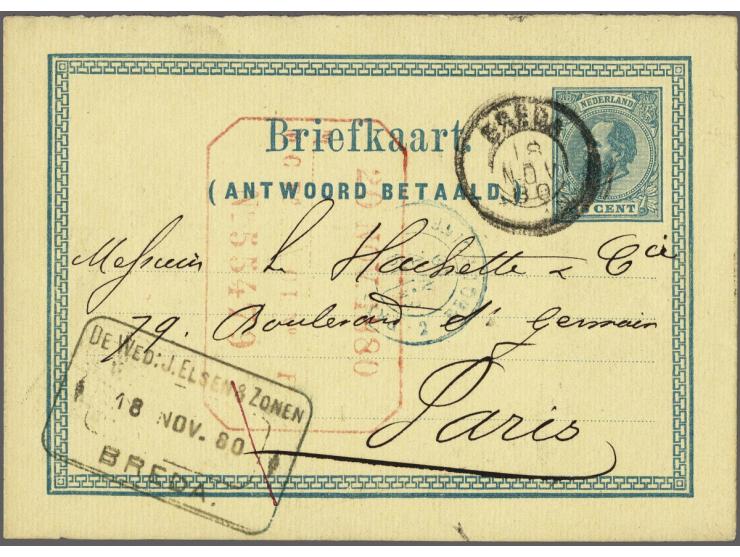 Briefkaart.
(ANTWOORD BETAALD.)
NEDERLAND
CENT
BREDA
18
NOV
80
Messieurs L. Hachette & Cie
79. Boulevard St Germain
Paris
DE WED: J. ELSEN & ZONEN
18 NOV. 80
BREDA.
20 NOV 1880
N. 55479